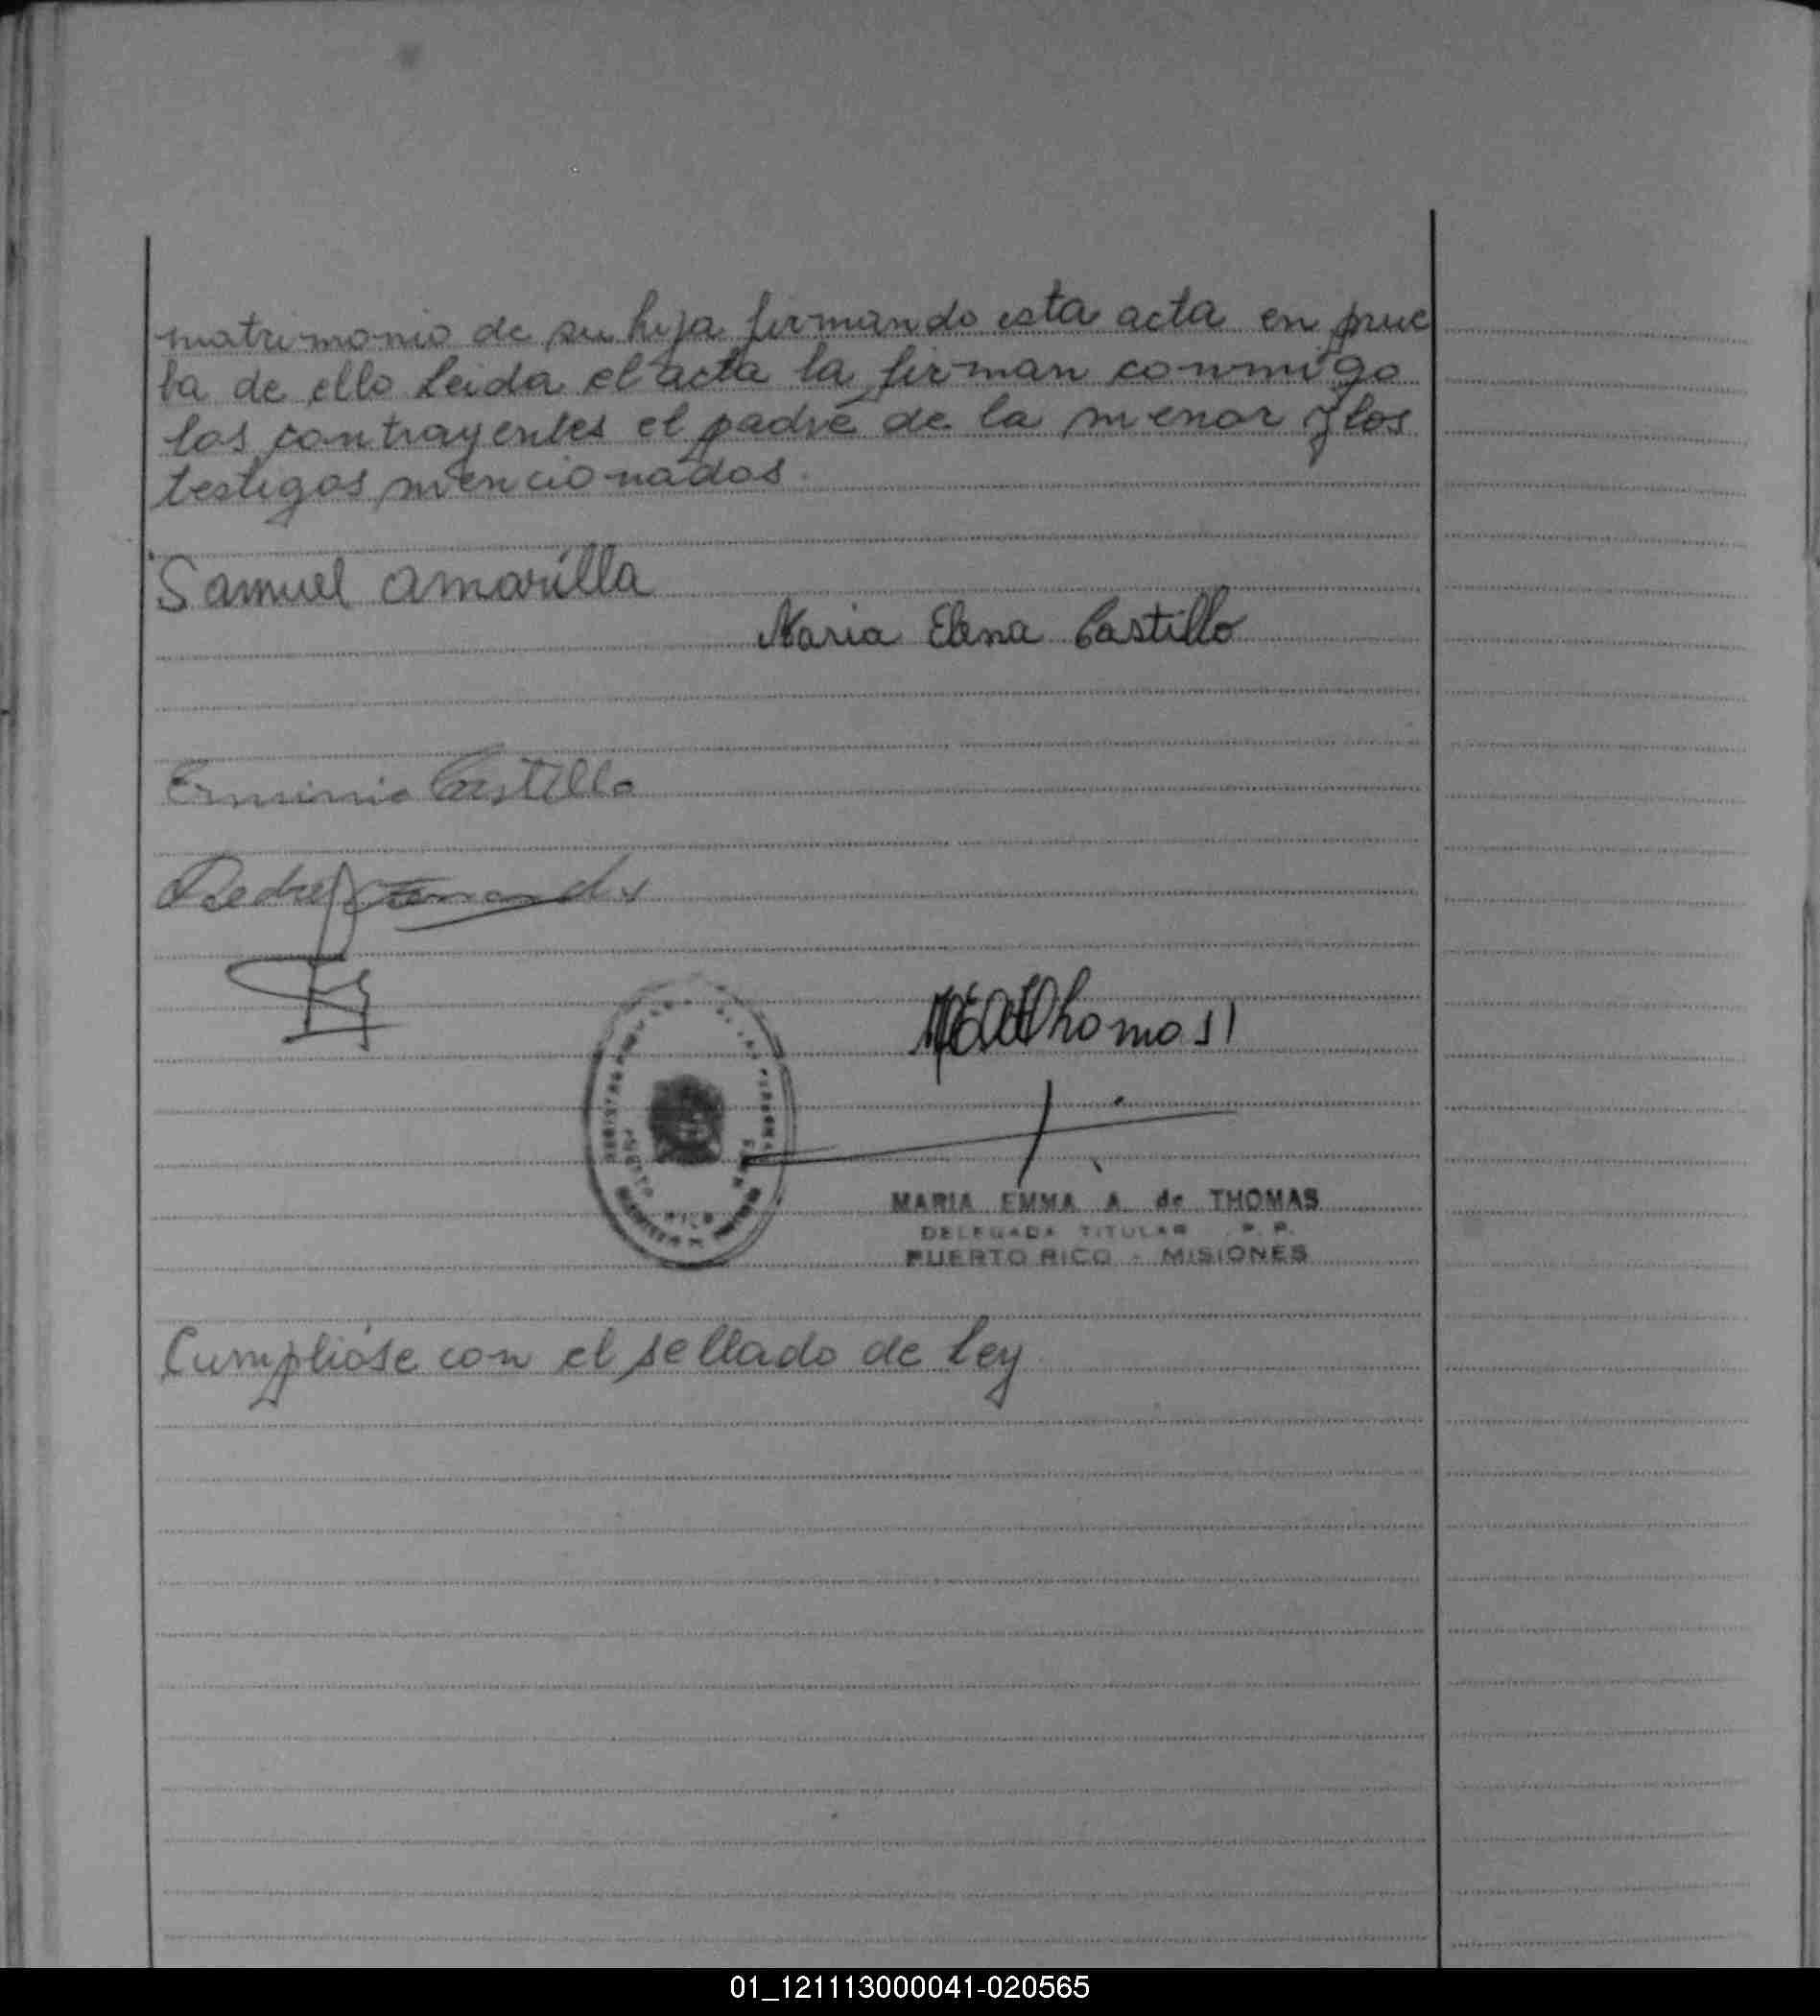 matrimonio de su hija firmando esta acta en prue
ba de ello Leida el acta la firman conmigo
los contrayentes el padre de la menor y los
testigos mencionados.
Samuel Amarilla
Maria Elena Castillo
Erminio Castillo
Pedro
Thomas
MARIA EMMA A. de THOMAS
DELEGADA TITULAR P. P.
PUERTO RICO - MISIONES
PUERTO RICO
Cumplióse con el sellado de Ley
01_121113000041-020565